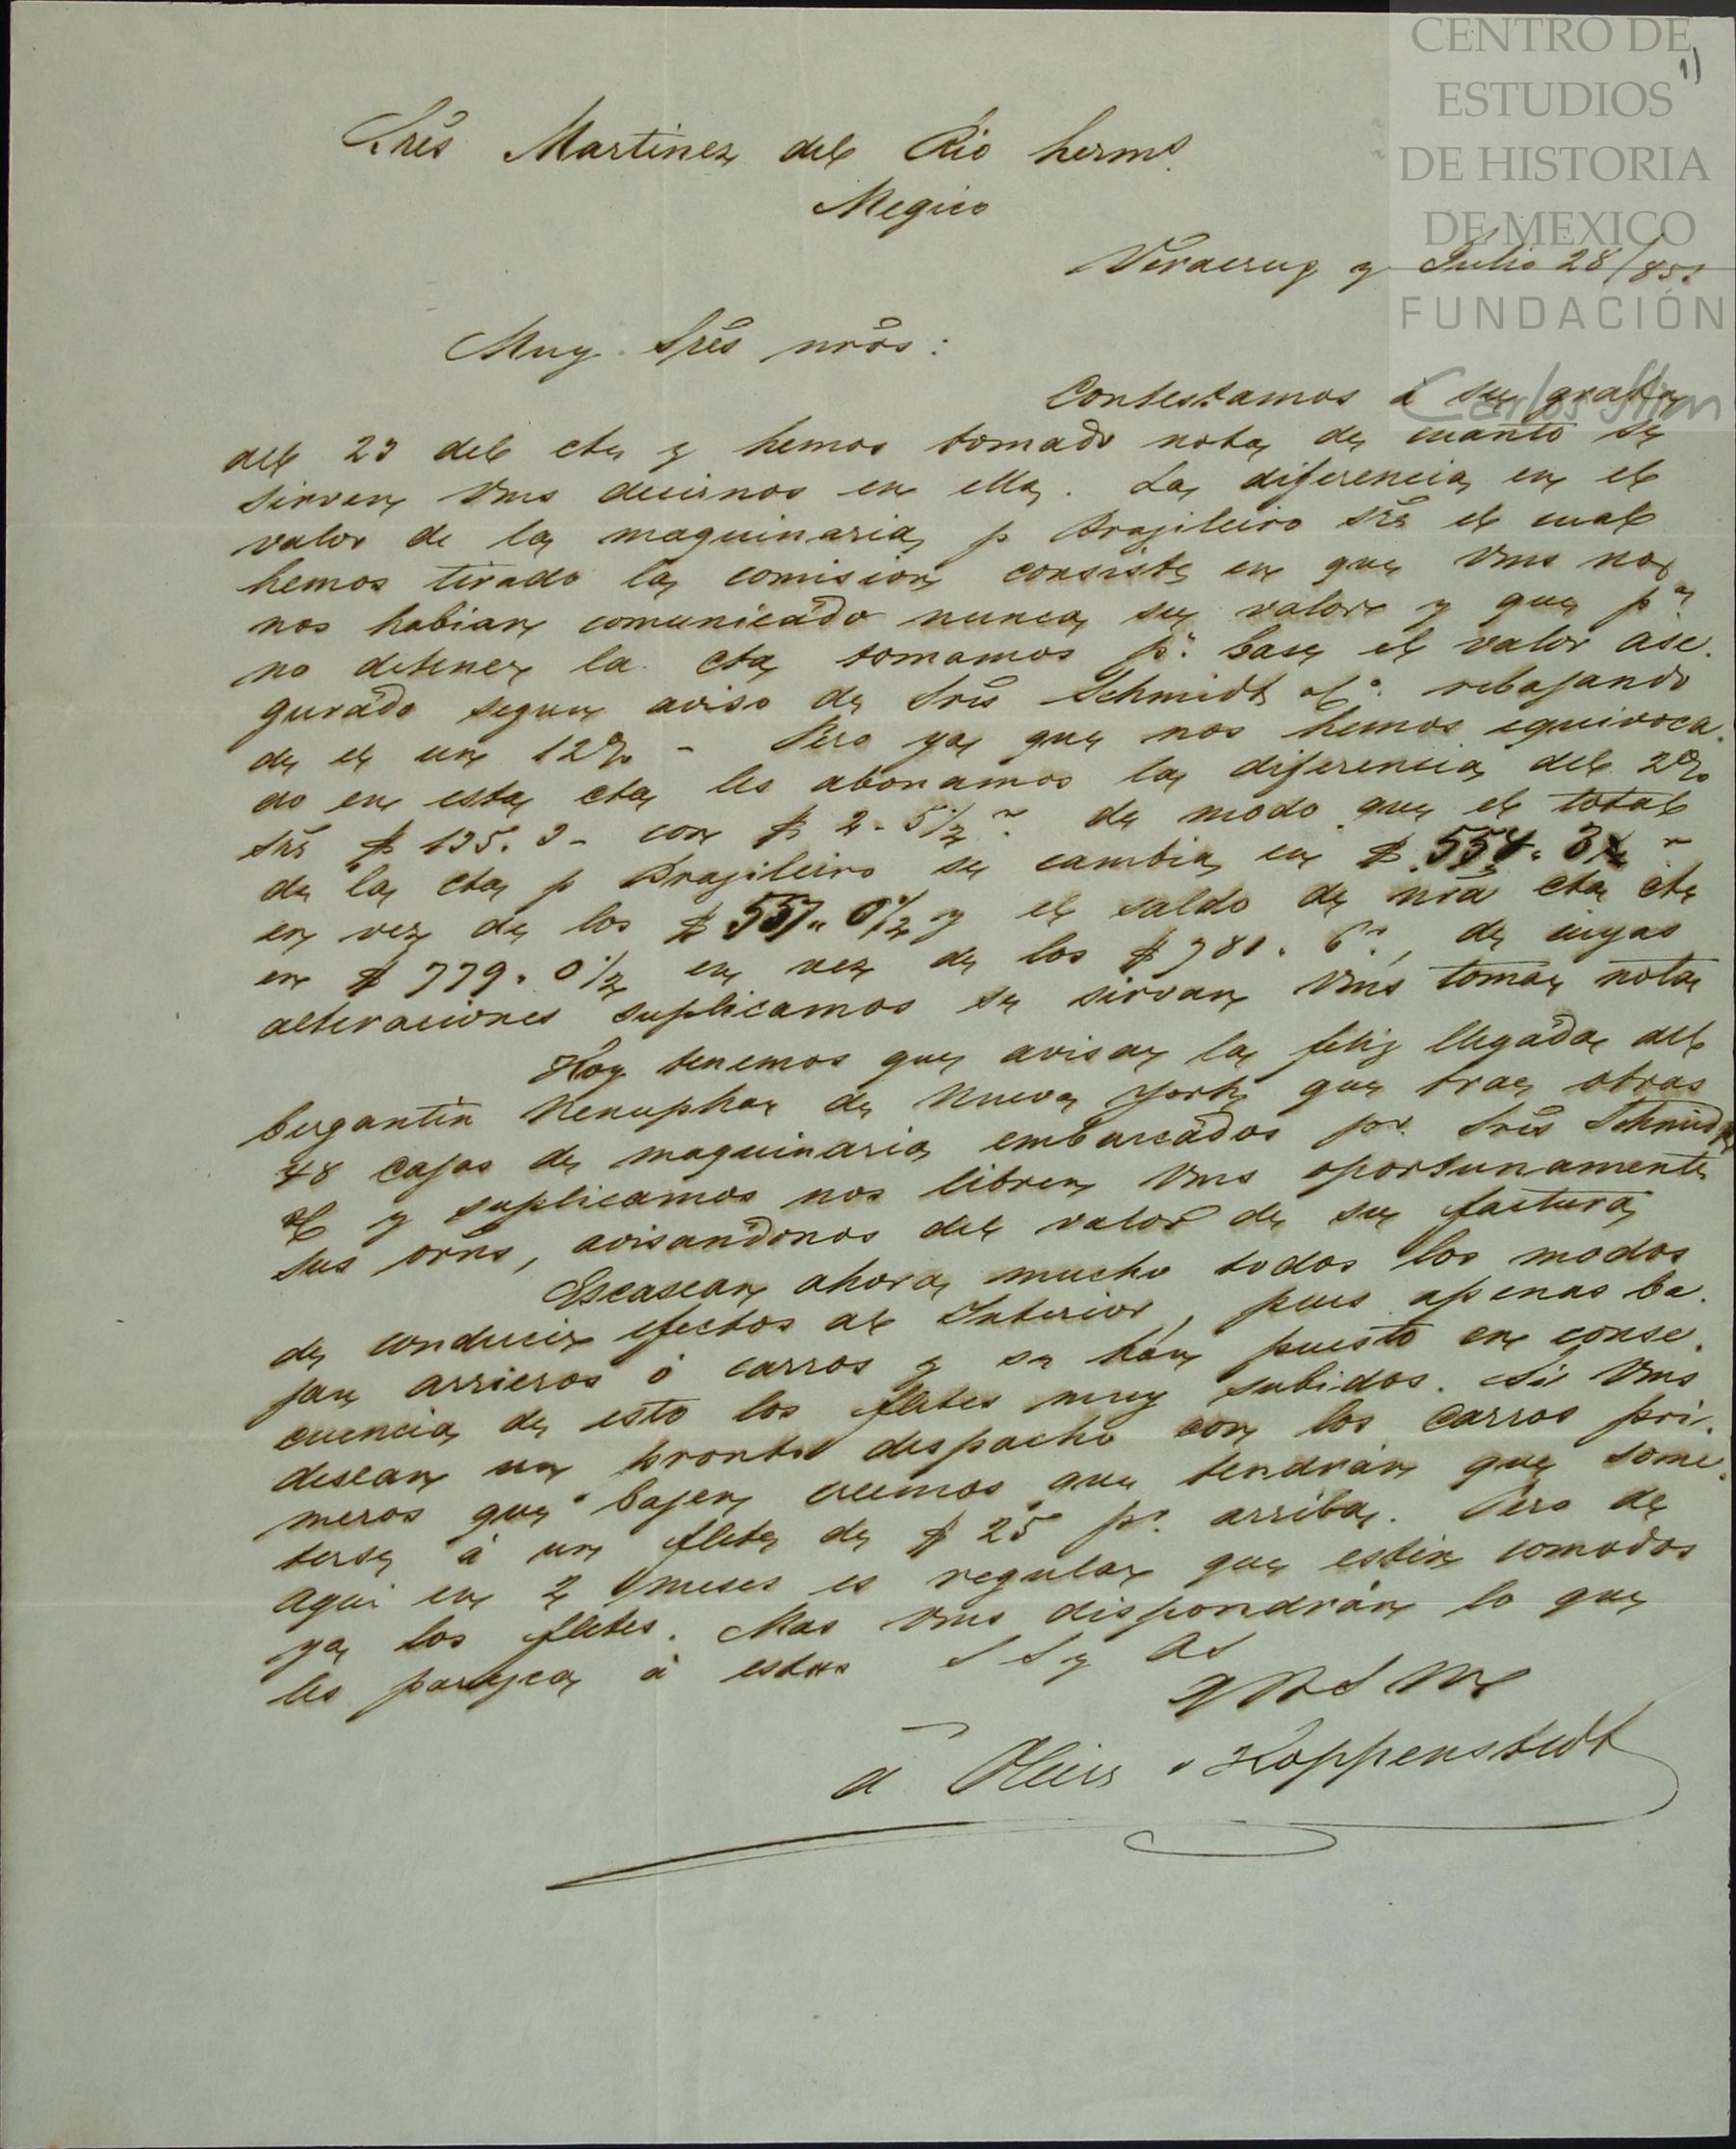 CENTRO DE
ESTUDIOS
DE HISTORIA
DE MEXICO
FUNDACIÓN
Carlos Slim
1)
Sres Martinez del Rio hermˢ.
Megico
Veracruz y Julio 28/85
Muy Sres nros:
Contestamos á su grata
del 23 del cte y hemos tomado nota de cuanto se
sirven Vms decirnos en ella. La diferencia en el
valor de la maquinaria p Brazileiro sre el cual
hemos tirado la comision consiste en que Vms no
nos habian comunicado nunca su valor y que pª
no detener la cta tomamos pr. base el valor ase.
gurado segun aviso de Sres Schmidt & Cº. rebajando
de el un 12% - Pero ya que nos hemos equivoca.
do en esta cta les abonamos la diferencia del 2%
sre $ 135. 3 - con $ 2. 5½ r de modo que el total
de la cta p Brazileiro se cambia en $ 554. 3 r
en vez de los $ 557. 0½ y el saldo de nra cta cte
en $ 779. 0½ en vez de los $ 781. 6 r., de cuyas
alteraciones suplicamos se sirvan Vms tomar nota
Hoy tenemos que avisar la feliz llegada del
bergantin Nenuphar de Nueva York que trae otras
48 cajas de maquinaria embarcados pr. Sres Schmidt
& C y suplicamos nos libren Vms oportunamente
sus orns, avisandonos del valor de su factura
Escasean ahora mucho todos los modos
de conducir efectos al Interior, pues apenas ba.
jan arrieros ó carros y se han puesto en conse.
cuencia de esto los fletes muy subidos. Si Vms
desean un pronto despacho con los carros pri.
meros que bajen creemos que tendrán que some.
terse á un flete de $ 25 pr. arriba. Pero de
aqui en 2 meses es regular que estén comodos
ya los fletes. Mas Vms dispondrán lo que
les parezca á estos S S y As
q B S M
d'Oleire & Koppenstedt